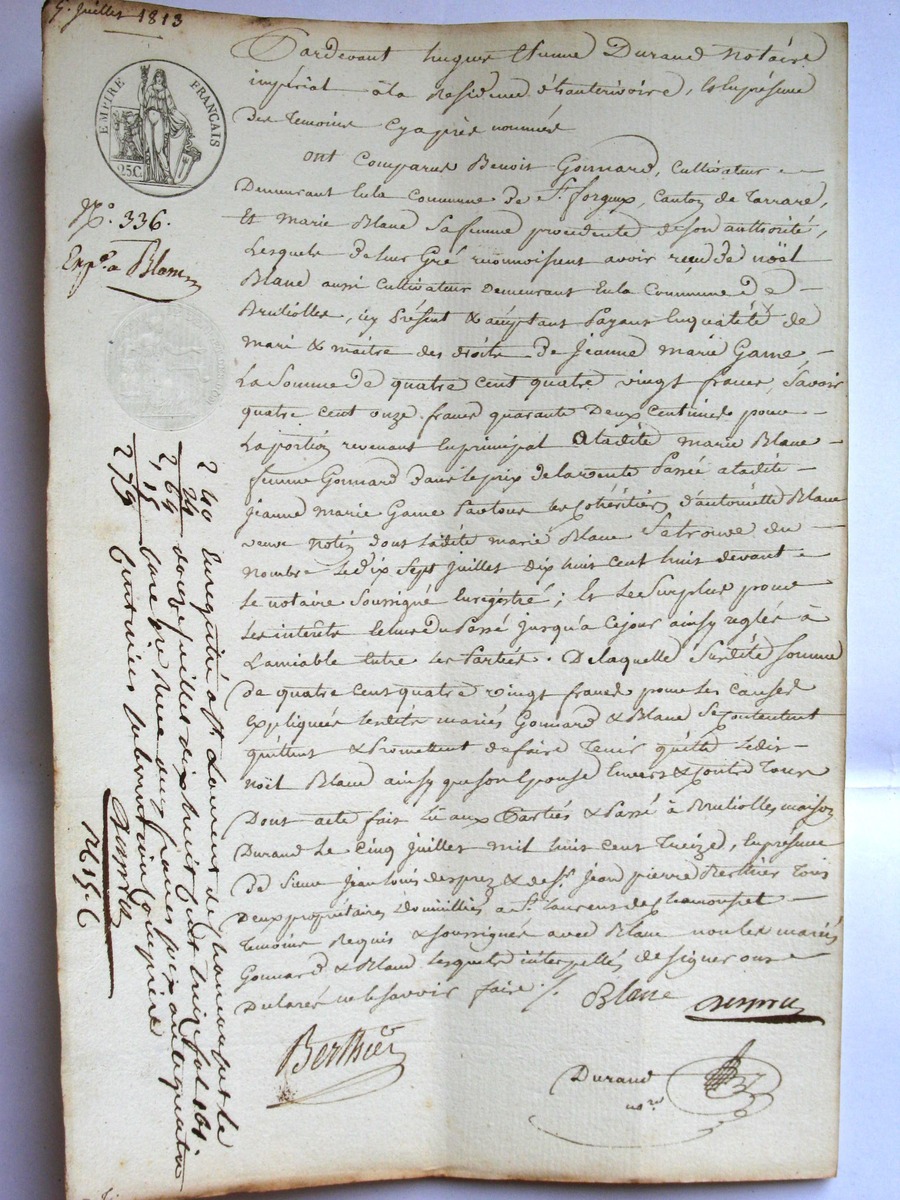 5. juillet 1813
EMPIRE FRANÇAIS
25C.
N°. 336.
Exp.on a Blanc
Pardevant hugues Etienne Durand Notaire
impérial à la Residence de hauterivoire, & En présence
Des temoins cy après nommés
ont Comparus Benoit Gonnard, cultivateur
Demeurant En la Commune De St. forgeux, Canton de tarrare,
Et marie Blanc Sa femme procedente de son authorité,
Lesquels de leur Gré reconnoissent avoir reçu de noël
Blanc aussi cultivateur Demeurant En la Commune De
Brulliolles, icy Présent & acceptant Payant En qualité de
mari & maitre des droits De Jeanne marie Game,
La Somme De quatre cent quatre vingt francs, Savoir
quatre cent onze francs quarante Deux Centimes pour
La portion revenant En principal a ladite marie Blanc
femme Gonnard dans le prix De la vente Passée a ladite
Jeanne Marie Game Par tous les Cohéritiers d'antoinette Blanc
veuve Dont ladite marie Blanc Se trouve du
Nombre Le Dix Sept Juillet dix huit cent huit devant
Le notaire Soussigné Enregistré; Et Le Surplus pour
Les interêts Jusqu'a Ce jour ainsy reglés à
L'amiable Entre les Parties. De laquelle Susdite Somme
de quatre cent quatre vingt francs pour les causes
Expliquées Lesdits mariés Gonnard & Blanc Se Contentent
quittent & Promettent de faire tenir quitte Ledit
Noël Blanc ainsy que son Epouse Envers & Contre Tous
Dont acte fait Lû aux Parties & Passé à Brulliolles maison
Durand Le Cinq Juillet Mil huit Cent Treize, En présence
De Sieur Jean louis desprez & de Sr. Jean pierre Berthier Tous
Deux propriétaires Domiciliés a St. Laurent de Chamousset
Temoins Requis & Soussignés avec Blanc non les mariés
Gonnard & Blanc Lesquels interpellés de signer ont
Declaré ne le Savoir faire ./.
Blanc
Desprez
Berthier
Durand
no.re
2 40 Enregistré à St. Laurent de Chamousset le
24 douze juillet dix huit cent treize fol. 161
2,64 Reçu deux francs quarante
2,15
279 centimes
Desprez